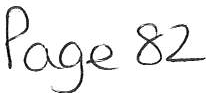 Page 82